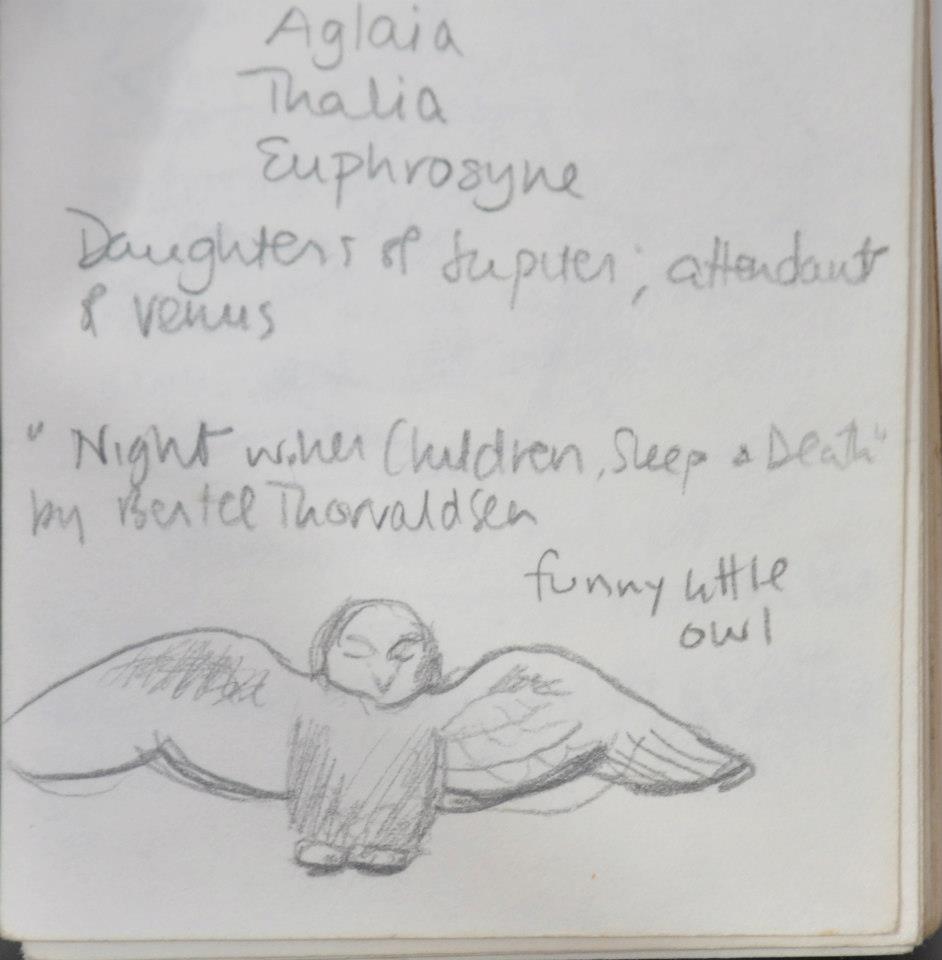 Aglaia
Thalia
Euphrosyne
Daughters of Jupiter; attendant
& Venus
"Night w. her Children, Sleep & Death"
by Bertel Thorvaldsen
funny little
owl